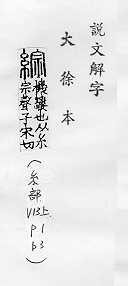 說文解字
大徐本
綜 機縷也从糸
宗聲子宋切
(糸部
V13上
P1
b3)